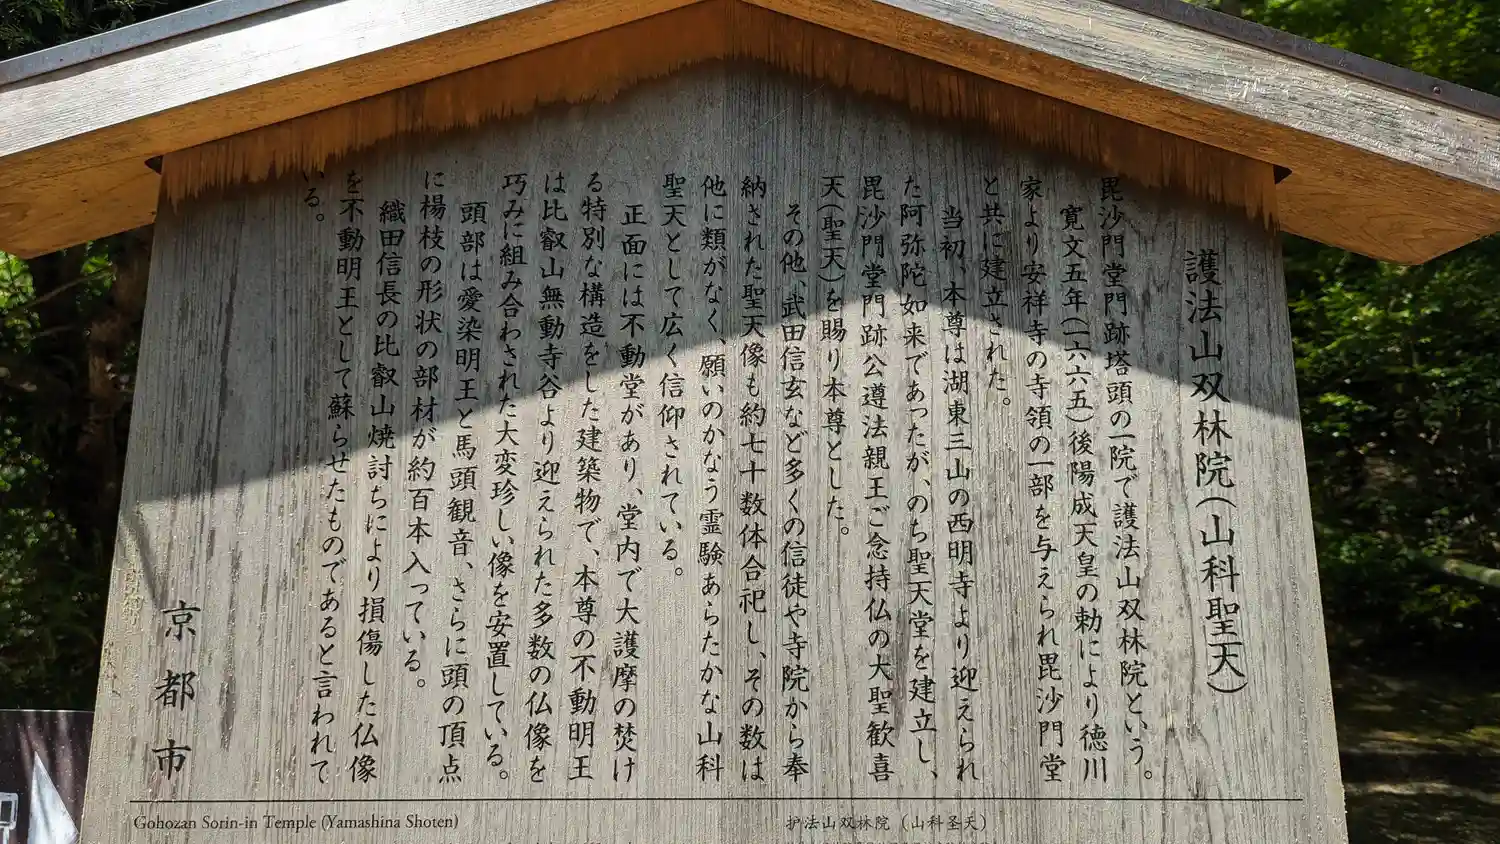 護法山双林院(山科聖天)
毘沙門堂門跡塔頭の一院で護法山双林院という。
寛文五年(一六六五)後陽成天皇の勅により徳川
家より安祥寺の寺領の一部を与えられ毘沙門堂
と共に建立された。
当初、本尊は湖東三山の西明寺より迎えられ
た阿弥陀如来であったが、のち聖天堂を建立し、
毘沙門堂門跡公遵法親王ご念持仏の大聖歓喜
天(聖天)を賜り本尊とした。
その他、武田信玄など多くの信徒や寺院から奉
納された聖天像も約七十数体合祀し、その数は
他に類がなく、願いのかなう霊験あらたかな山科
聖天として広く信仰されている。
正面には不動堂があり、堂内で大護摩の焚け
る特別な構造をした建築物で、本尊の不動明王
は比叡山無動寺谷より迎えられた多数の仏像を
巧みに組み合わされた大変珍しい像を安置している。
頭部は愛染明王と馬頭観音、さらに頭の頂点
に楊枝の形状の部材が約百本入っている。
織田信長の比叡山焼討ちにより損傷した仏像
を不動明王として蘇らせたものであると言われて
いる。
京都市
Gohozan Sorin-in Temple (Yamashina Shoten)
护法山双林院（山科圣天）